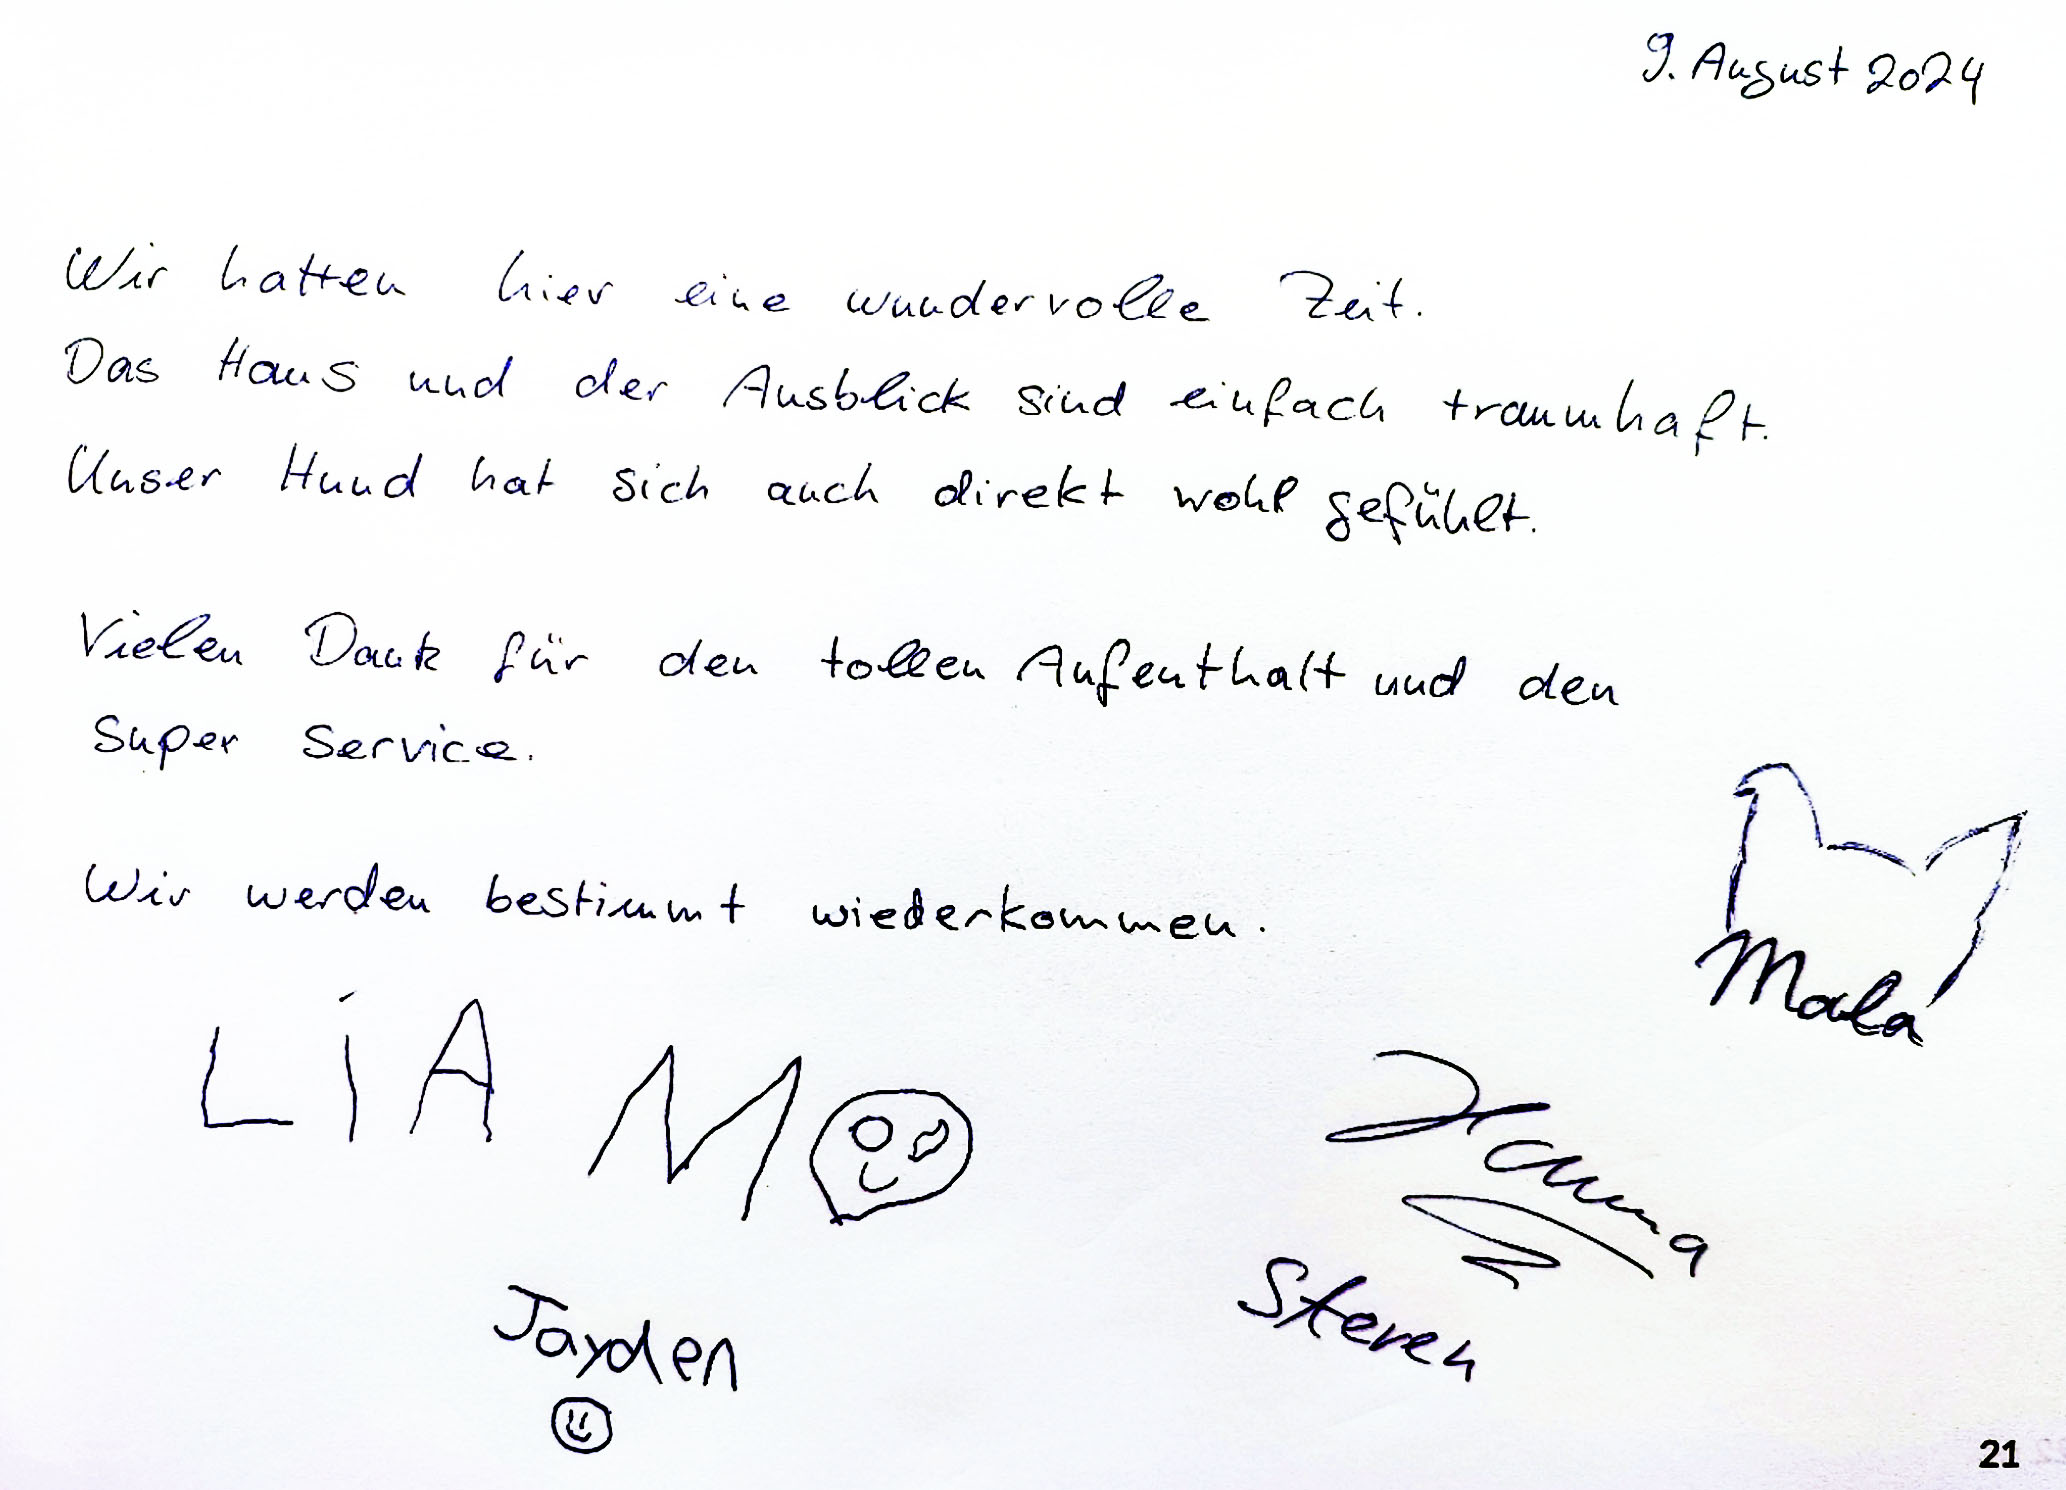 9. August 2024
Wir hatten hier eine wundervolle Zeit.
Das Haus und der Ausblick sind einfach traumhaft.
Unser Hund hat sich auch direkt wohl gefühlt.
Vielen Dank für den tollen Aufenthalt und den
Super Service.
Wir werden bestimmt wiederkommen.
Mala
LiA MO
Hanna
Jayden
Steven
21